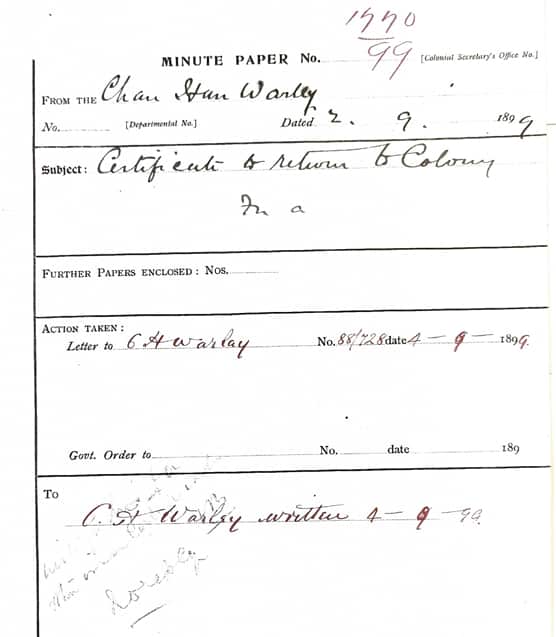 1770
99
MINUTE PAPER No. [Colonial Secretary's Office No.]
FROM THE Chan Han Warley
No. [Departmental No.] Dated 2. 9. 1899
Subject: Certificate to return to Colony
In a
FURTHER PAPERS ENCLOSED: Nos.
ACTION TAKEN:
Letter to C H Warley No. 88/728 date 4 - 9 - 1899.
Govt. Order to No. date 189
To
C. H Warley written 4 - 9 - 99.